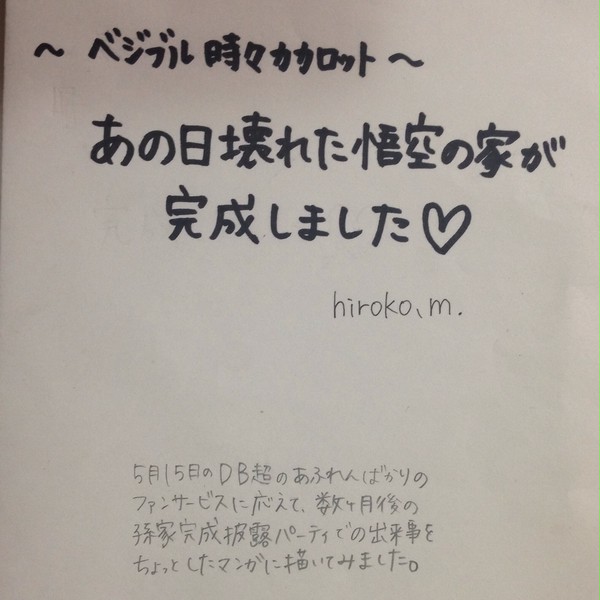 ～ ベジブル 時々カカロット ～
あの日壊れた悟空の家が
完成しました♡
hiroko、m.
5月15日のDB超のあふれんばかりの
ファンサービスに応えて、数ヶ月後の
孫家完成披露パーティでの出来事を
ちょっとしたマンガに描いてみました。